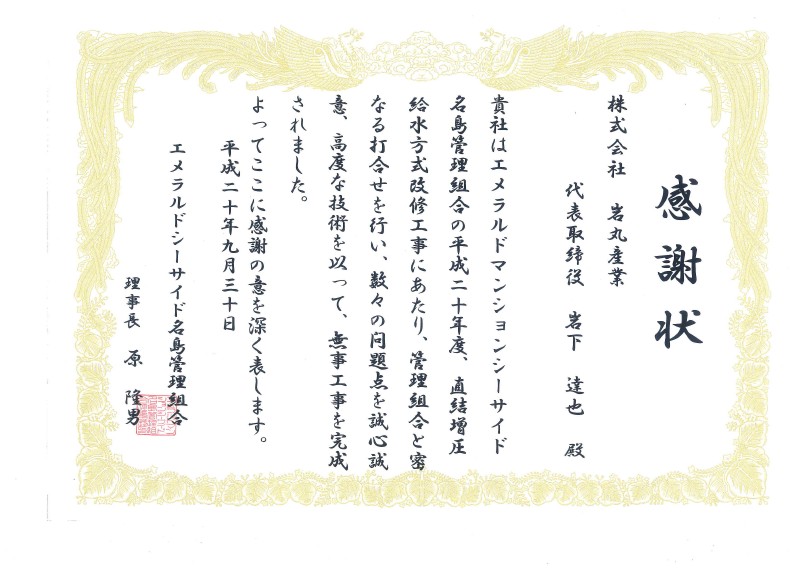 感謝状
株式会社　岩丸産業
代表取締役　岩下　達也　殿
貴社はエメラルドマンションシーサイド
名島管理組合の平成二十年度、直結増圧
給水方式改修工事にあたり、管理組合と密
なる打合せを行い、数々の問題点を誠心誠
意、高度な技術を以って、無事工事を完成
されました。
よってここに感謝の意を深く表します。
平成二十年九月三十日
エメラルドシーサイド名島管理組合
理事長　原　隆男